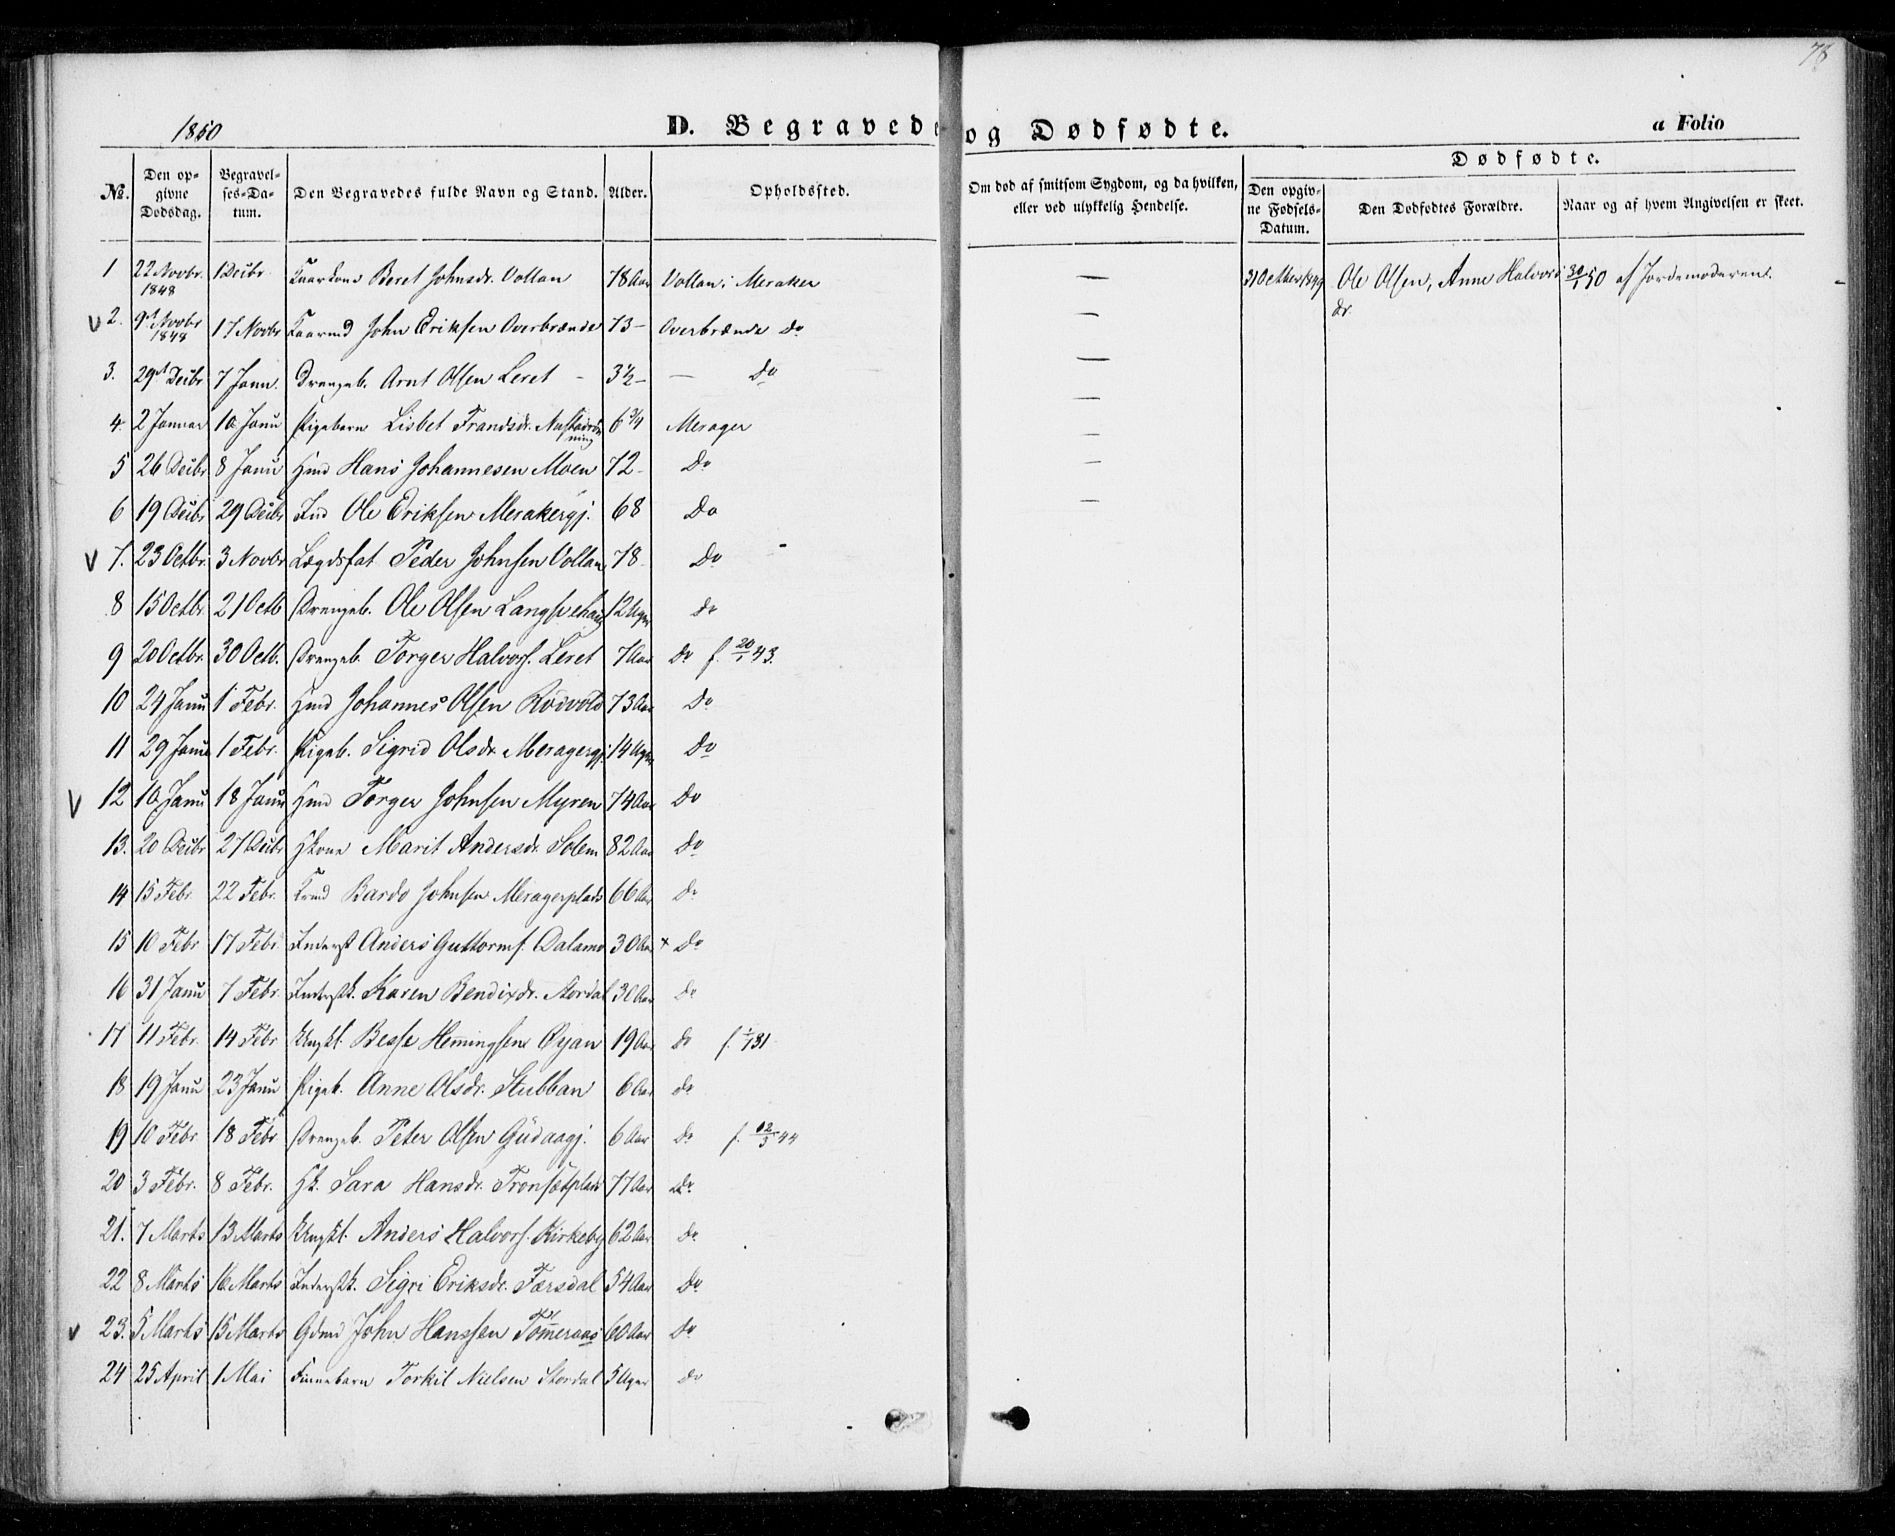 78
1850
D. Begravede og Dødfødte.
a Folio
№. Den opgivne Dødsdag. Begravelses-Datum. Den Begravedes fulde Navn og Stand. Alder. Opholdssted. Om død af smitsom Sygdom, og da hvilken, eller ved ulykkelig Hendelse. Dødfødte. Den opgivne Fødsels-Datum. Den Dødfødtes Forældre. Naar og af hvem Angivelsen er skeet.
1 22 Novbr. 1848 1 Decbr Kaarkone Beret Johnsdr. Vollan 78 Aar Vollan i Meraker — 31 October 1849 Ole Olsen, Anne Halvorsdr 30/1 50 af Jordemoderen.
2. 9de Novbr 1848 17 Novbr Kaarmd John Eriksen Overbrænde 73 – Overbrænde Do —
3. 29de Decbr 7 Janu. Drengeb. Arnt Olsen Leret – 3½ – — Do —
4. 2 Januar 10 Janu Pigebarn Lisbet Frandsdr. 6 3/4 Merager —
5 26 Decbr 8 Janu Hmd Hans Johannesen Moen 72 – Do —
6 19 Decbr 29 Decbr Ind Ole Eriksen Merakergj. 68 Do —
7. 23 Octbr. 3 Novbr Lægdsfat Peder Johnsen Vollan 78 – Do —
8 15 Octbr 21 Octb Drengeb. Ole Olsen 12 Uger Do
9 20 Octbr. 30 Octb. Drengeb. Torger Halvors. Leret 7 Aar Do f. 20/1 43.
10 24 Janu 1 Febr. Hmd Johannes Olsen Rødvold 73 Aar Do
11 29 Janu 1 Febr. Pigeb. Sigrid Olsdr. Meragergj. 14 Uger Do
12 10 Janu 18 Janu Hmd Torger Johnsen Myren 74 Aar Do
13. 20 Decbr 27 Decbr Hkone Marit Andersdr. Solem 82 Aar Do
14 15 Febr. 22 Febr. Bardo Johnsen Meragerplads 66 Aar Do
15 10 Febr 17 Febr. Inderst Anders Guttorms. Dalamo 30 Aar + Do
16 31 Janu 7 Febr. Inderstk. Karen Bendixdr. Stordal 30 Aar Do
17 11 Febr. 14 Febr Ungkl. Besse Hemingsen Øyan 19 Aar Do f. 1/1 31
18 19 Janu 23 Janu Pigeb. Anne Olsdr. Stubban 6 Aar Do
19 10 Febr. 18 Febr Drengeb. Peter Olsen Gudaagj. 6 Aar Do f. 12/3 44
20 3 Febr. 8 Febr. Hk. Sara Hansdr. Tronsetplads 77 Aar Do
21. 7 Marts 13 Marts Ungkl. Anders Halvors. Kirkeby 62 Aar Do
22 8 Marts 16 Marts Inderstk. Sigri Eriksdr. Færsdal 54 Aar Do
23. 5 Marts 15 Marts Gdmd John Hanssen Tømeraas 60 Aar Do
24 25 April 1 Mai Finnebarn Torkil Nielsen Stordal 5 Uger Do